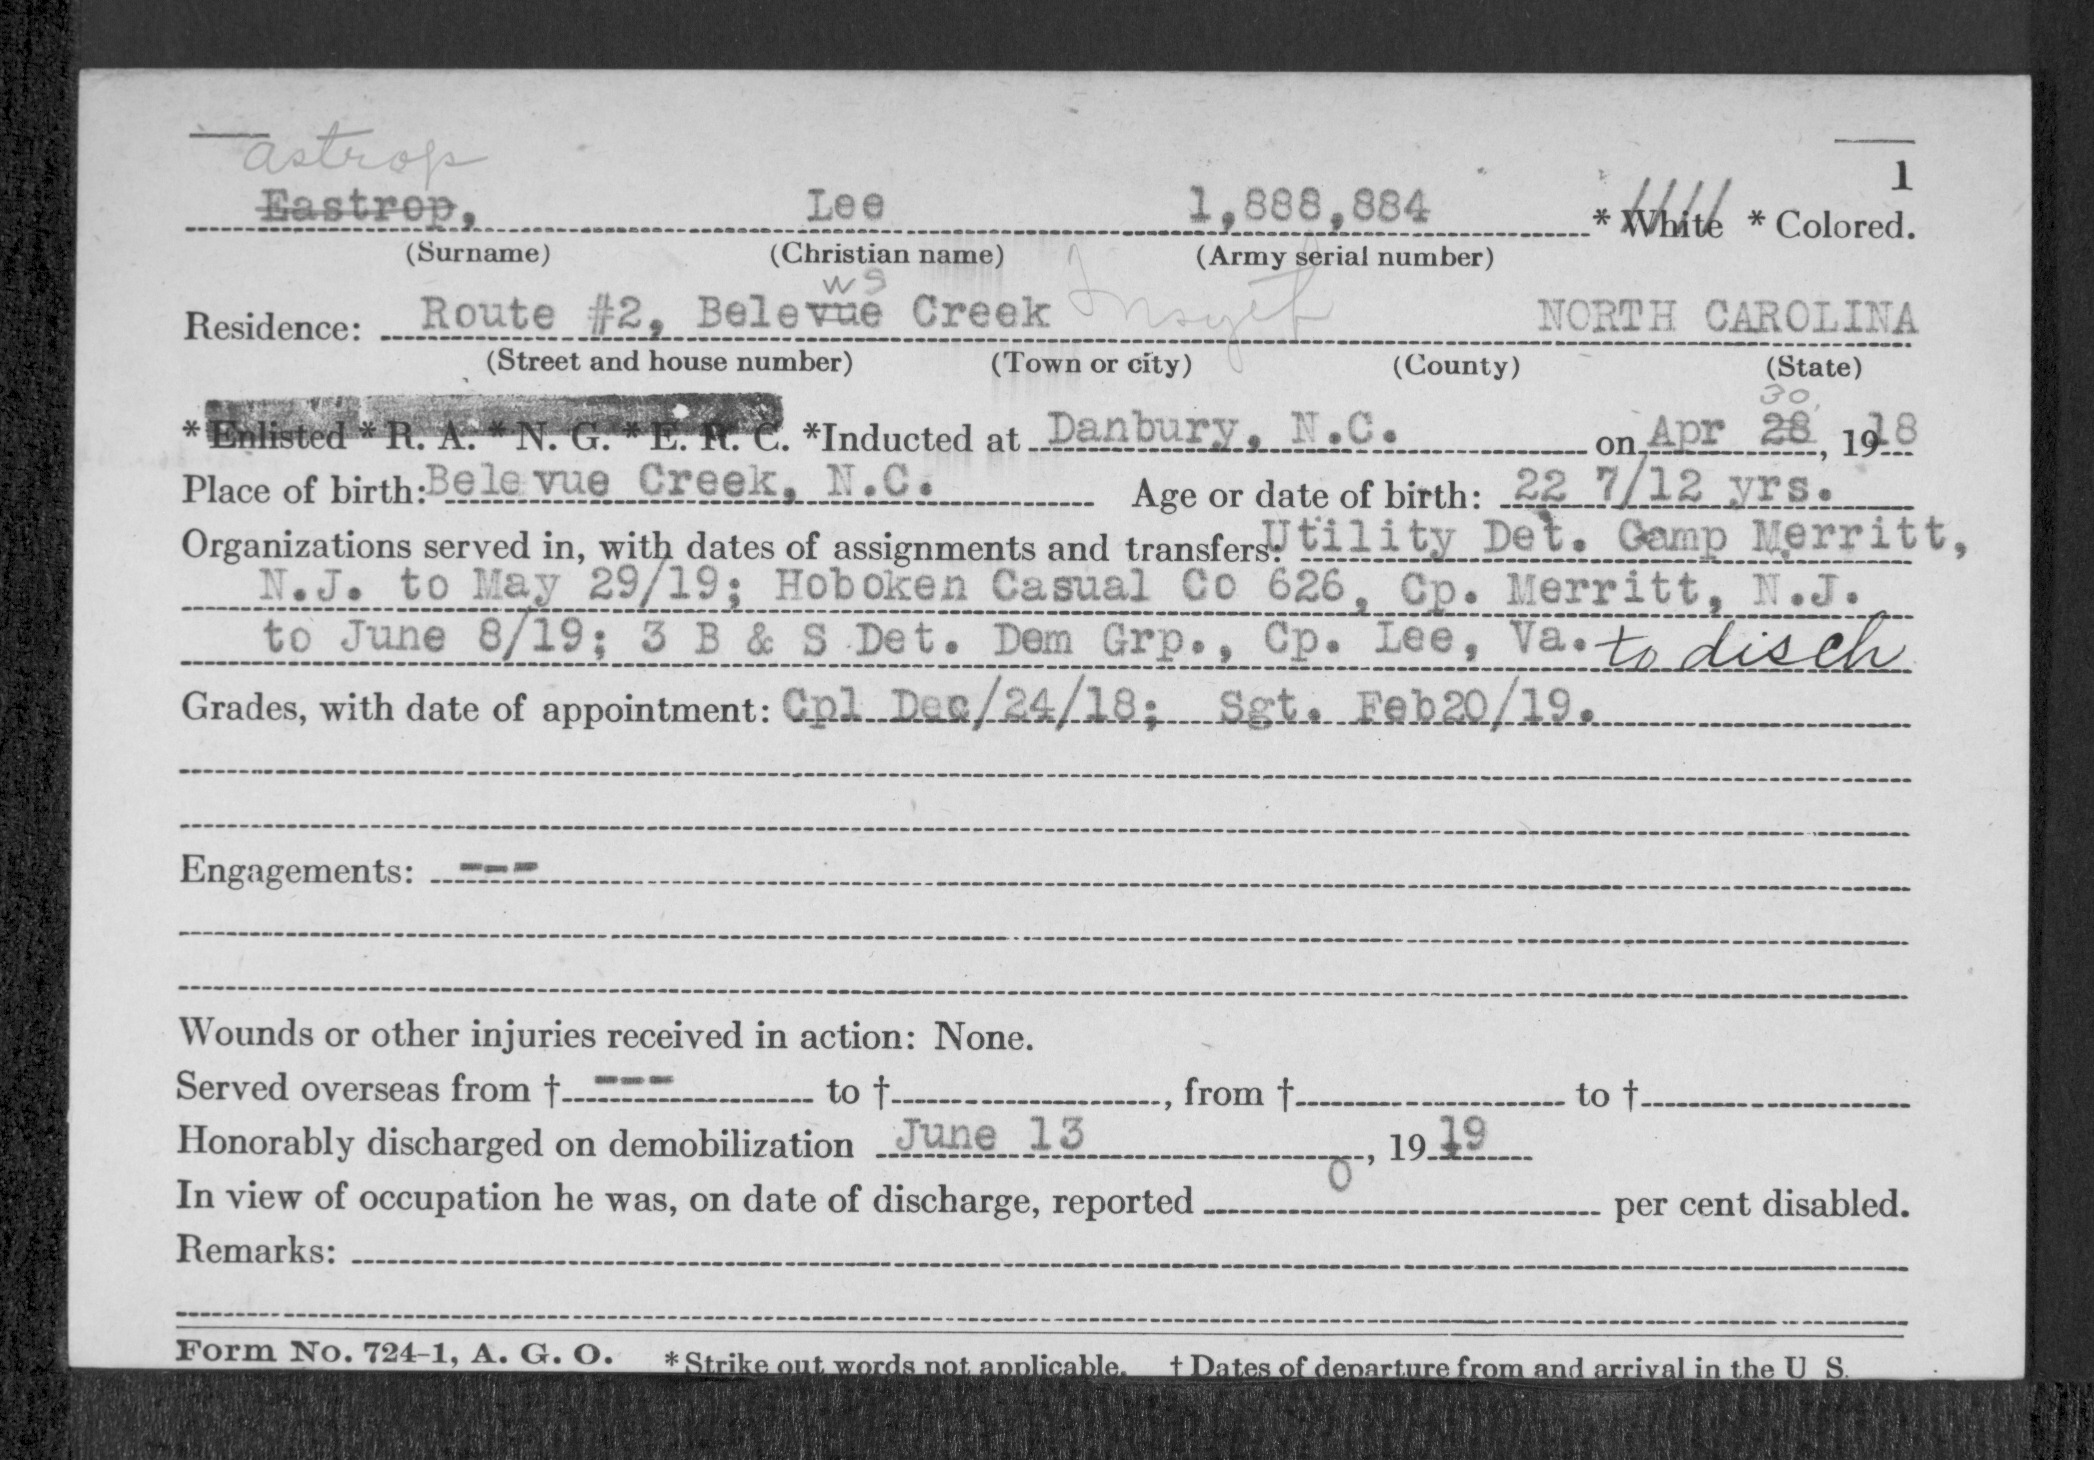 astrop
1
Eastrop, Lee 1,888,884 * White * Colored.
(Surname) (Christian name) (Army serial number)
ws
Residence: Route #2, Belevue Creek Forsyth NORTH CAROLINA
(Street and house number) (Town or city) (County) (State)
30
* Enlisted * R. A. * N. G. * E. R. C. *Inducted at Danbury, N.C. on Apr 28, 1918
Place of birth: Belevue Creek, N.C. Age or date of birth: 22 7/12 yrs.
Organizations served in, with dates of assignments and transfers: Utility Det. Camp Merritt,
N.J. to May 29/19; Hoboken Casual Co 626, Cp. Merritt, N.J.
to June 8/19; 3 B & S Det. Dem Grp., Cp. Lee, Va. to disch
Grades, with date of appointment: Cpl Dec/24/18; Sgt. Feb20/19.
Engagements: ---
Wounds or other injuries received in action: None.
Served overseas from † --- to †, from † to †
Honorably discharged on demobilization June 13, 1919
In view of occupation he was, on date of discharge, reported 0 per cent disabled.
Remarks:
Form No. 724-1, A. G. O. * Strike out words not applicable. † Dates of departure from and arrival in the U S.